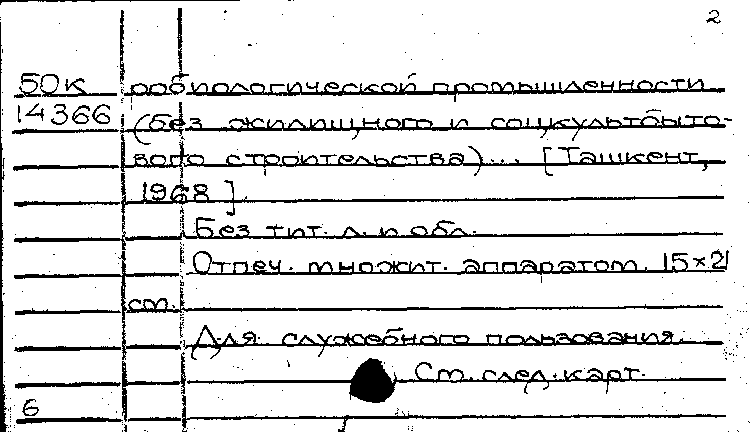 2
50К робиологической промышленности
14366 (без жилищного и соцкультбыто-
вого строительства)... [Ташкент,
1968].
Без тит. л. и обл.
Отпеч. множит. аппаратом. 15×21
см.
Для служебного пользования.
См. след. карт.
6